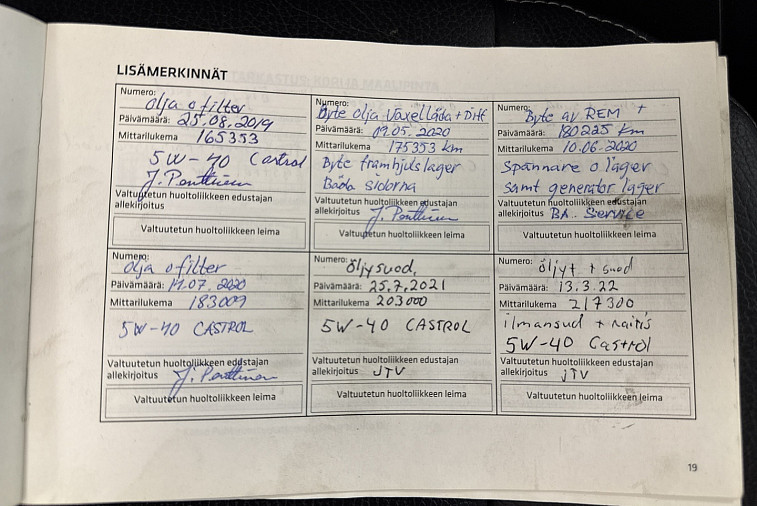 LISÄMERKINNÄT
Numero: olja o filter
Päivämäärä: 25.08.2019
Mittarilukema 165353
5W-40 Castrol
J. Penttinen
Valtuutetun huoltoliikkeen edustajan
allekirjoitus
Valtuutetun huoltoliikkeen leima
Numero: Byte olja Växellåda + Diff
Päivämäärä: 09.05.2020
Mittarilukema 175353 km
Byte framhjulslager
Båda sidorna
Valtuutetun huoltoliikkeen edustajan
allekirjoitus J. Penttinen
Valtuutetun huoltoliikkeen leima
Numero: Byte av REM +
Päivämäärä: 180225 km
Mittarilukema 10.06.2020
Spännare o lager
samt generator lager
Valtuutetun huoltoliikkeen edustajan
allekirjoitus BA. Service
Valtuutetun huoltoliikkeen leima
Numero: olja o filter
Päivämäärä: 11.07.2020
Mittarilukema 183009
5W-40 CASTROL
Valtuutetun huoltoliikkeen edustajan
allekirjoitus J. Penttinen
Valtuutetun huoltoliikkeen leima
Numero: öljysuod,
Päivämäärä: 25.7.2021
Mittarilukema 203000
5W-40 CASTROL
Valtuutetun huoltoliikkeen edustajan
allekirjoitus JTV
Valtuutetun huoltoliikkeen leima
Numero: öljyt + suod
Päivämäärä: 13.3.22
Mittarilukema 217300
ilmansud + raitis
5W-40 Castrol
Valtuutetun huoltoliikkeen edustajan
allekirjoitus JTV
Valtuutetun huoltoliikkeen leima
19